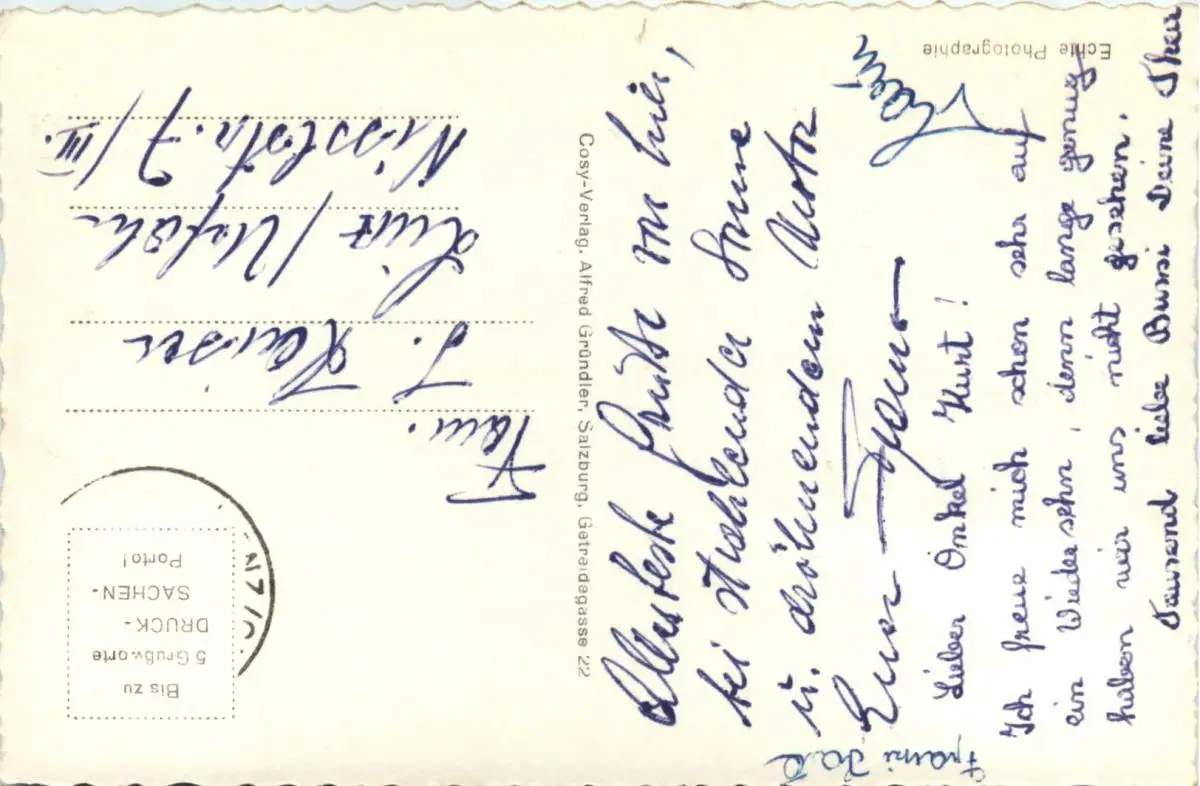 Echte Photographie
Bis zu
5 Grußworte
DRUCK-
SACHEN-
Porto!
Cosy-Verlag, Alfred Gründler, Salzburg, Getreidegasse 22
Fam.
Linz / Urfahr
7/III.
Allerbeste Grüße von hier,
bei strahlender Sonne
u. dröhnendem
Euer
Lieber Onkel Kurt!
Ich freue mich schon sehr auf
ein Wiedersehn, denn lange genug
haben wir uns nicht gesehen.
Tausend liebe Bussi Deine